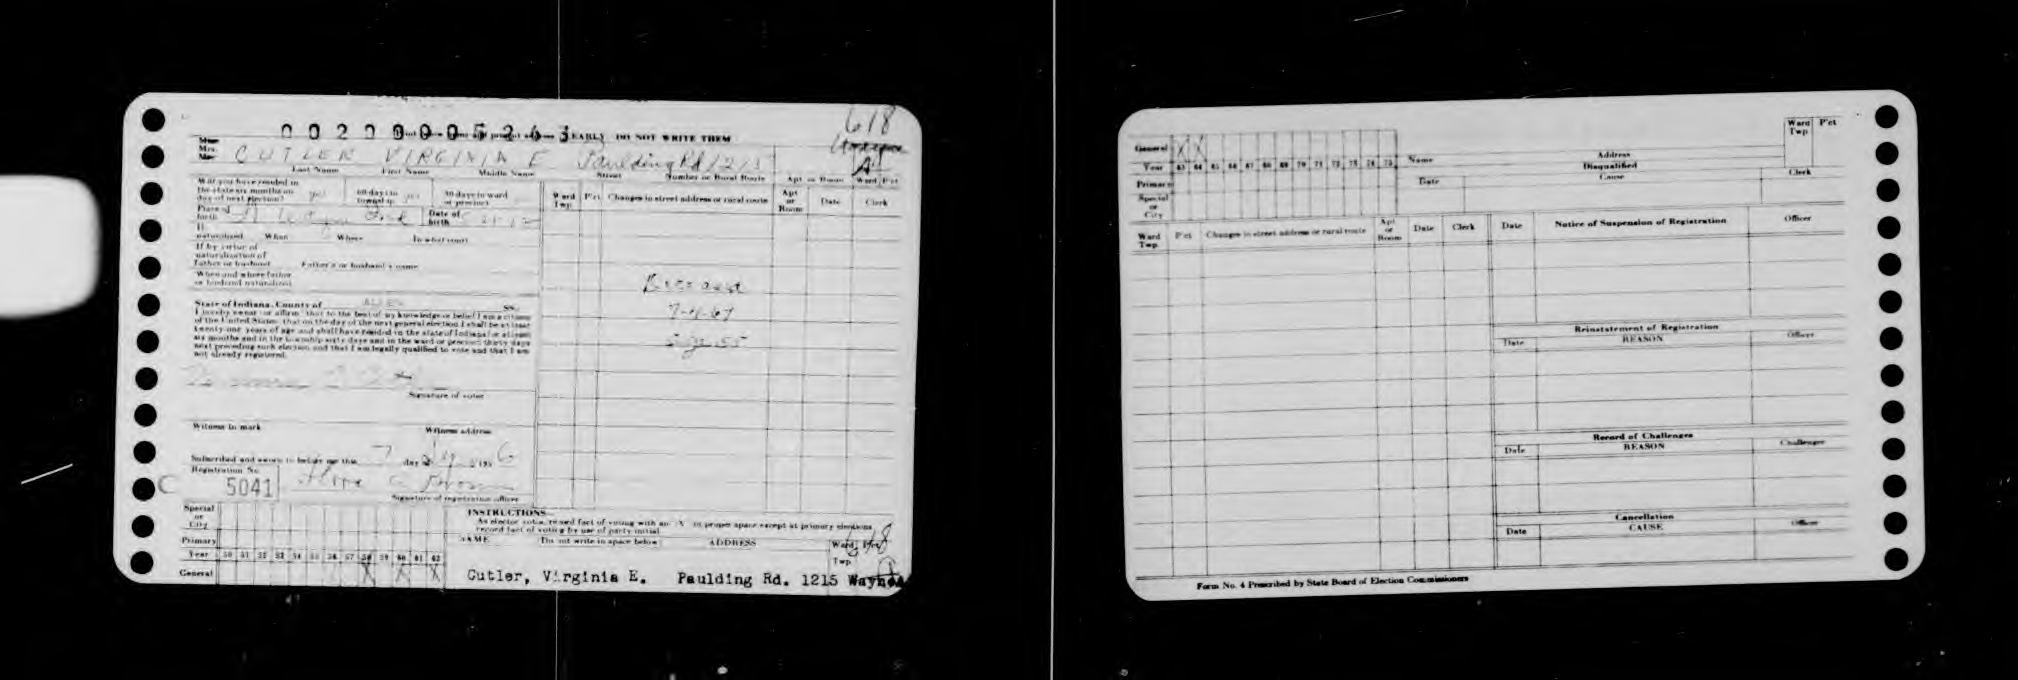 618
00200005263 EARLY DO NOT WRITE THEM
Mrs. CUTLER VIRGINIA E Paulding Rd 1215
Last Name First Name Middle Name Street Number or Rural Route Apt or Room Ward Pct
Will you have resided in
the state six months on
day of next election? yes 60 days in
township yes 30 days in ward
or precinct
Place of
birth Date of
birth
If
naturalized When Where In what court
If by virtue of
naturalization of
Father or husband Father's or husband's name
When and where father
or husband naturalized
State of Indiana, County of ALLEN SS.
I hereby swear or affirm that to the best of my knowledge or belief I am a citizen
of the United States; that on the day of the next general election I shall be at least
twenty-one years of age and shall have resided in the state of Indiana for at least
six months and in the township sixty days and in the ward or precinct thirty days
next preceding such election and that I am legally qualified to vote and that I am
not already registered.
Signature of voter
Witness to mark Witness address
Subscribed and sworn to before me this 7 day of 195 6
Registration No.
C 5041
Signature of registration officer
Ward
Twp. Pct. Changes in street address or rural route Apt
or
Room Date Clerk
7-11-67
Special
or
City
Primary
Year 50 51 52 53 54 55 56 57 58 59 60 61 62
General X X X
INSTRUCTIONS
As elector votes, record fact of voting with an X in proper space except at primary elections
record fact of voting by use of party initial
NAME Do not write in space below ADDRESS Ward Pct
Twp.
618
Cutler, Virginia E. Paulding Rd. 1215 Wayne
General X X
Year 63 64 65 66 67 68 69 70 71 72 73 74 75
Primary
Special
or
City
Name Address
Disqualified
Date Cause Clerk
Ward
Twp P'ct
Ward
Twp. P'ct Changes in street address or rural route Apt
or
Room Date Clerk
Date Notice of Suspension of Registration Officer
Reinstatement of Registration
Date REASON Officer
Record of Challenges
Date REASON Challenger
Cancellation
Date CAUSE Officer
Form No. 4 Prescribed by State Board of Election Commissioners